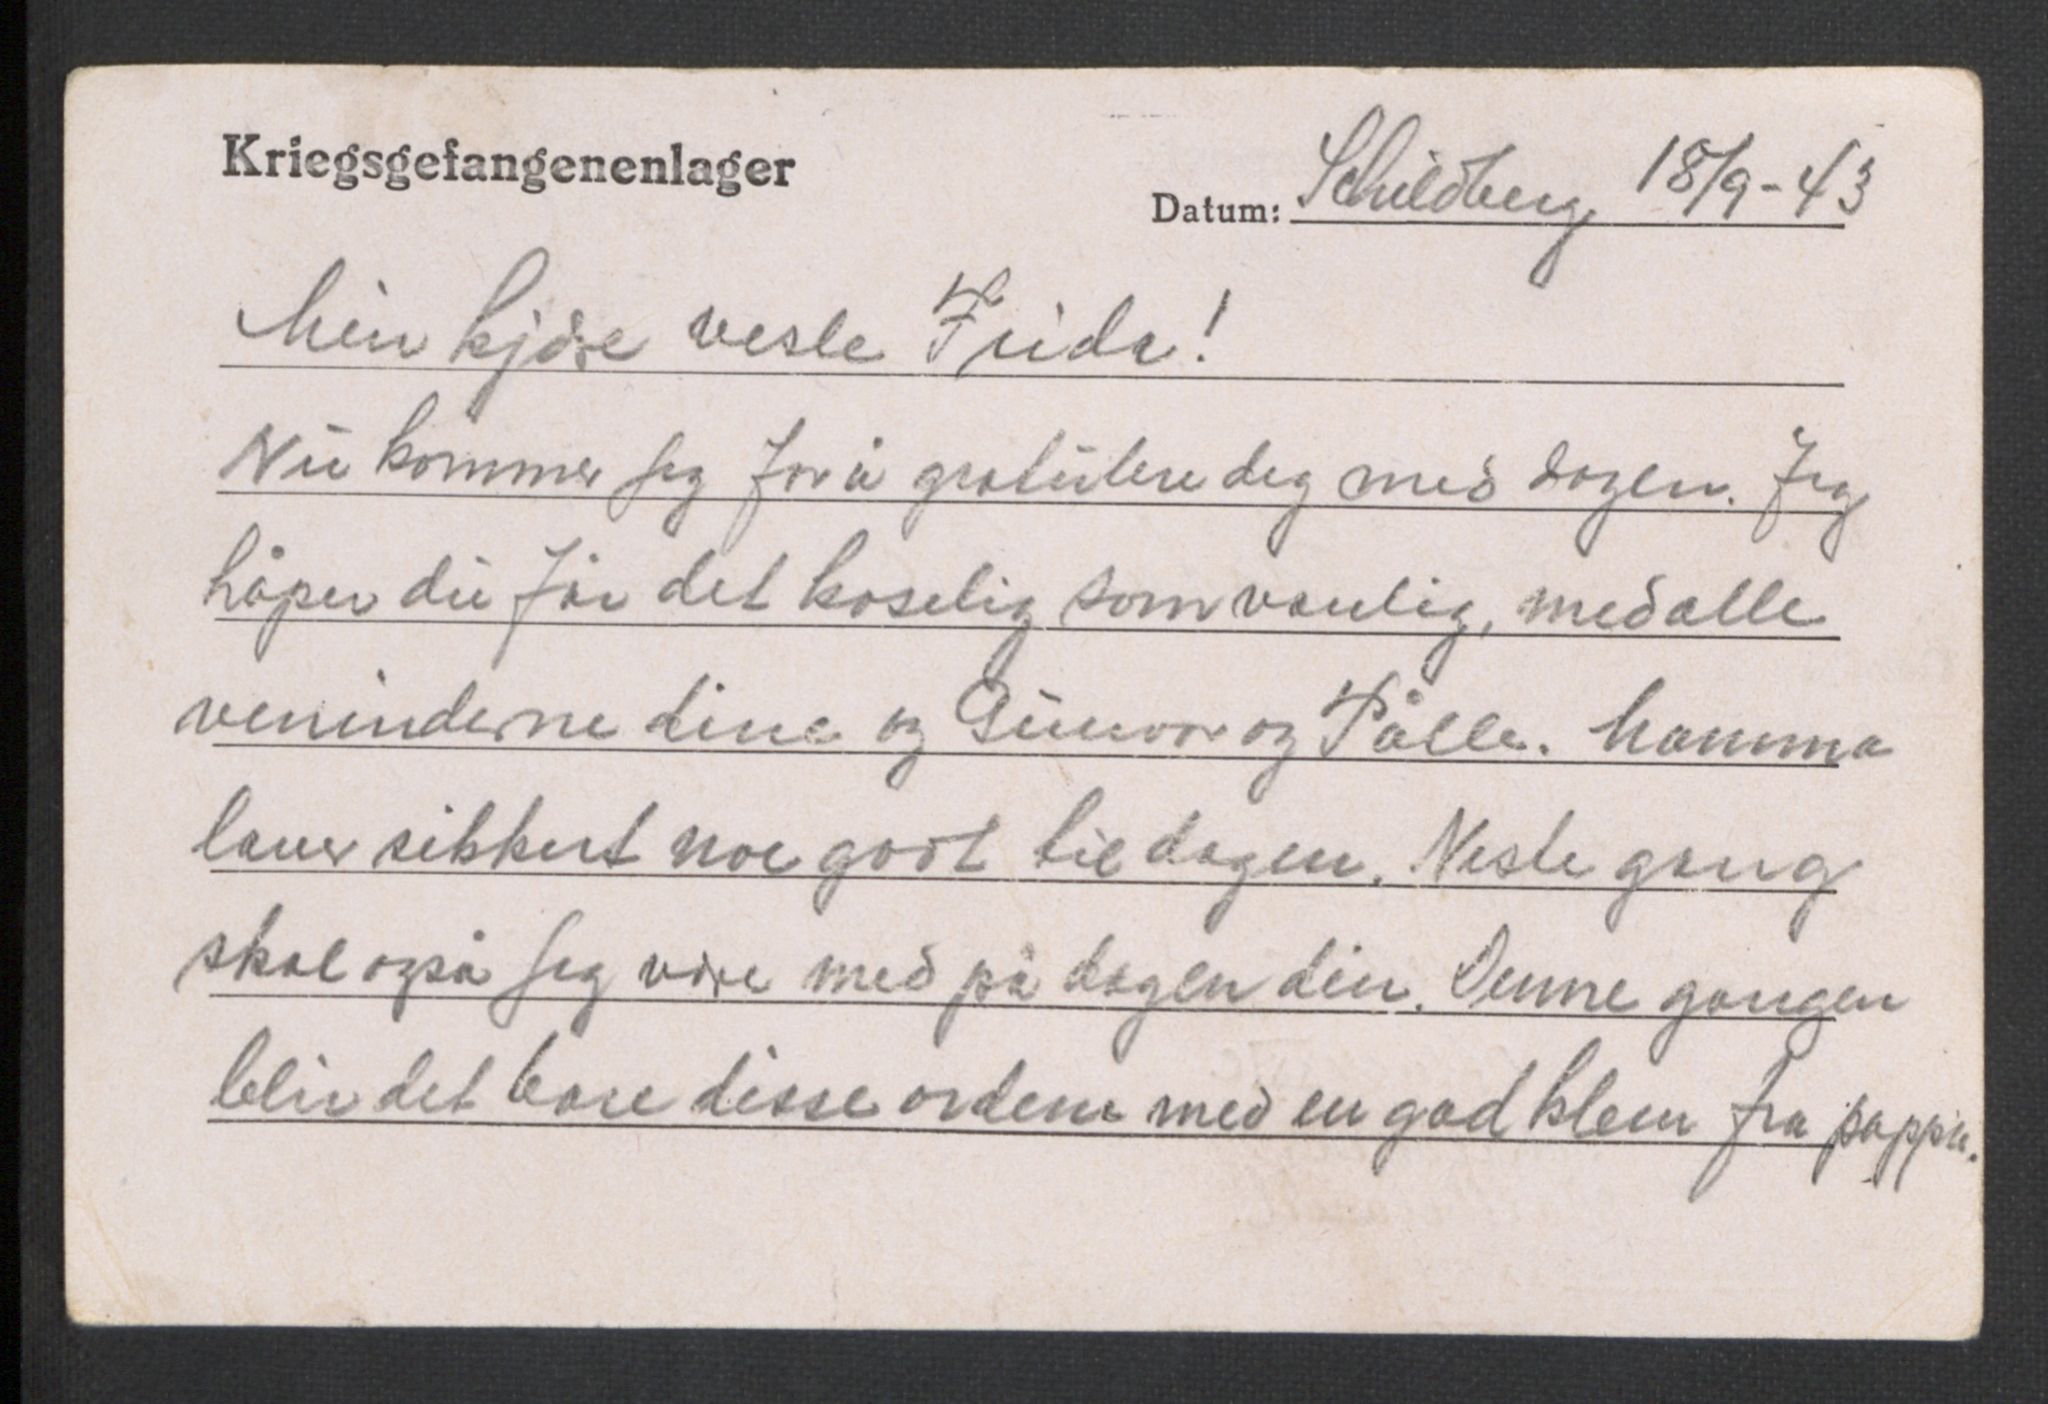 Kriegsgefangenenlager
Datum: Schildberg 18/9-43
Min kjære vesle Frida!
Nu kommer jeg for å gratulere deg med dagen. Jeg
håper du får det koselig som vanlig, med alle
veninderne dine og Gunvor og Pålle. Mamma
laver sikkert noe godt til dagen. Neste gang
skal også jeg være med på dagen din. Denne gangen
blir det bare disse ordene med en god klem fra pappa.